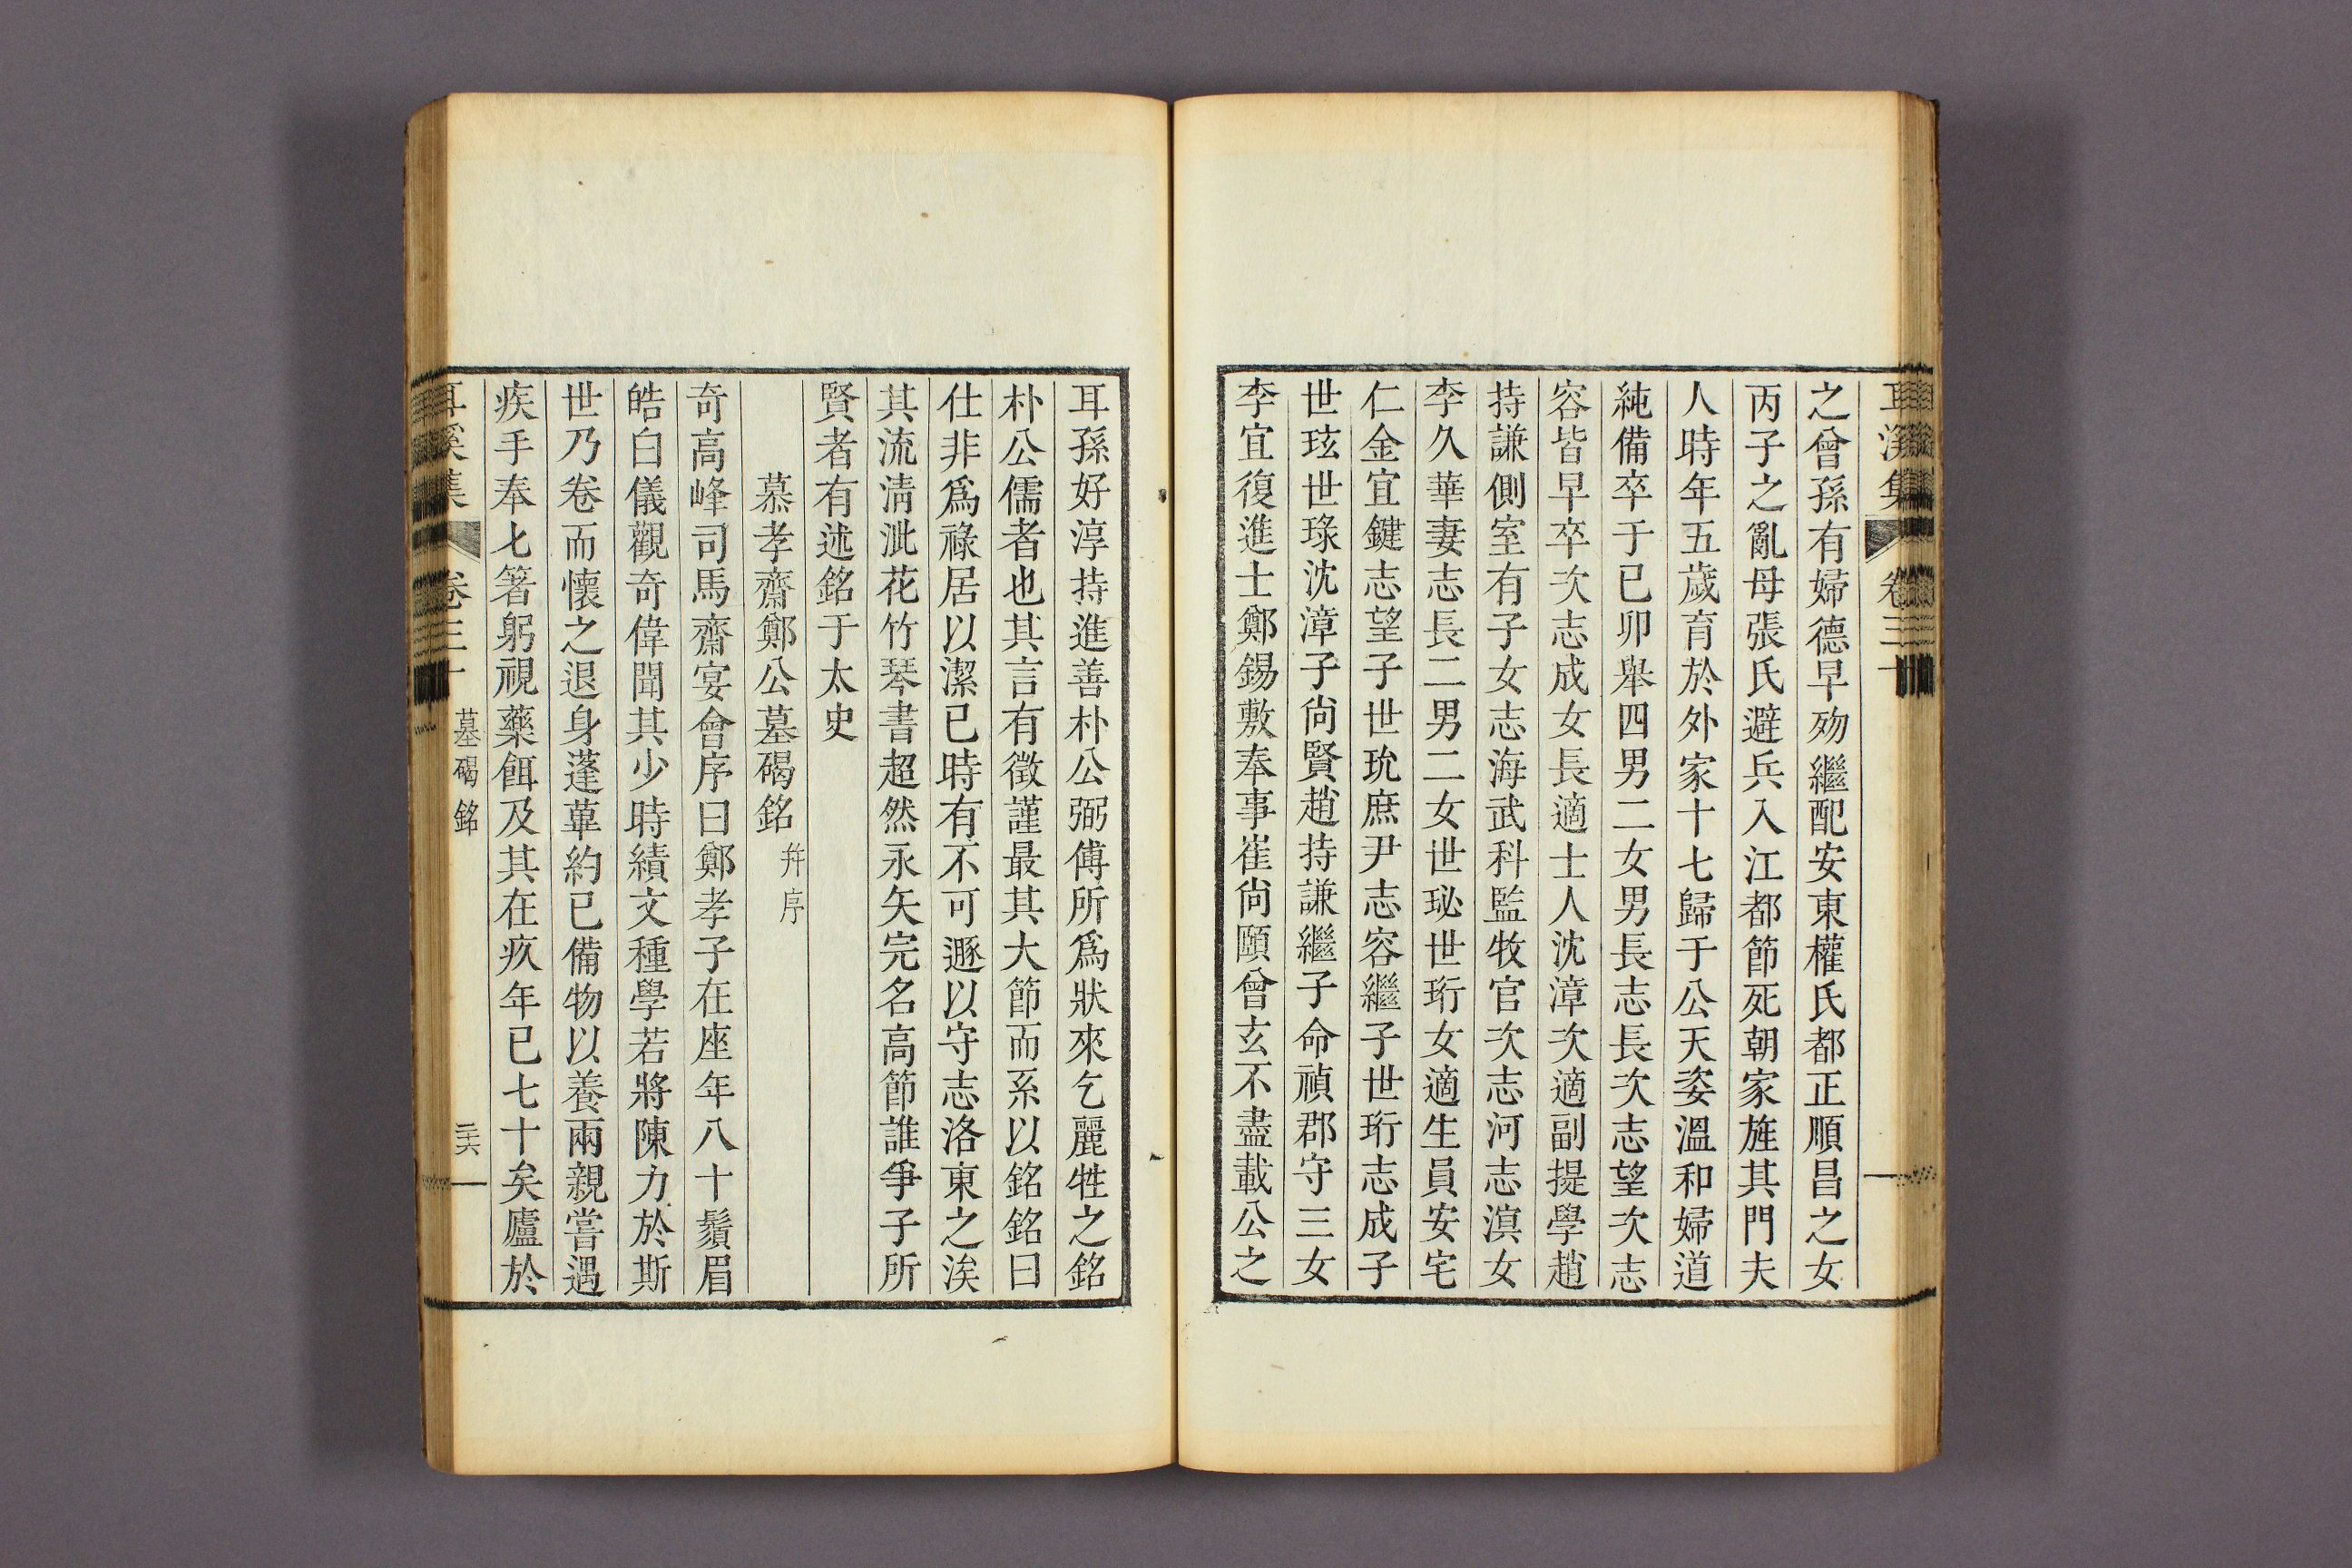 耳溪集 卷三十
之曾孫有婦德早歾繼配安東權氏都正順昌之女
丙子之亂母張氏避兵入江都節死朝家旌其門夫
人時年五歲育於外家十七歸于公天姿溫和婦道
純備卒于己卯舉四男二女男長志長次志望次志
容皆早卒次志成女長適士人沈漳次適副提學趙
持謙側室有子女志海武科監牧官次志河志溟女
李久華妻志長二男二女世珌世珩女適生員安宅
仁金宜鍵志望子世珫庶尹志容繼子世珩志成子
世玹世琭沈漳子尙賢趙持謙繼子命禎郡守三女
李宜復進士鄭錫敷奉事崔尙頤曾玄不盡載公之
耳孫好淳持進善朴公弼傅所爲狀來乞麗牲之銘
朴公儒者也其言有徵謹最其大節而系以銘銘曰
仕非爲祿居以潔已時有不可遯以守志洛東之涘
其流淸泚花竹琴書超然永矢完名高節誰爭子所
賢者有述銘于太史
慕孝齋鄭公墓碣銘 幷序
奇高峰司馬齋宴會序曰鄭孝子在座年八十鬚眉
皓白儀觀奇偉聞其少時績文種學若將陳力於斯
世乃卷而懷之退身蓬蓽約已備物以養兩親嘗遇
疾手奉匕箸躬視藥餌及其在疚年已七十矣廬於
耳溪集 卷三十 墓碣銘 二六